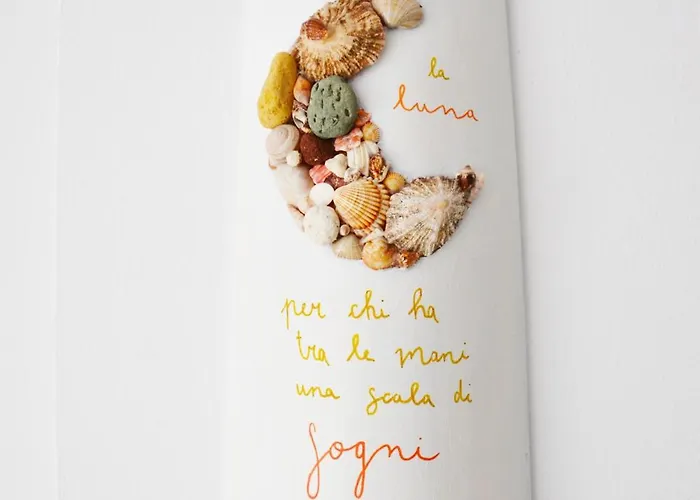 la
luna
per chi ha
tra le mani
una scala di
sogni